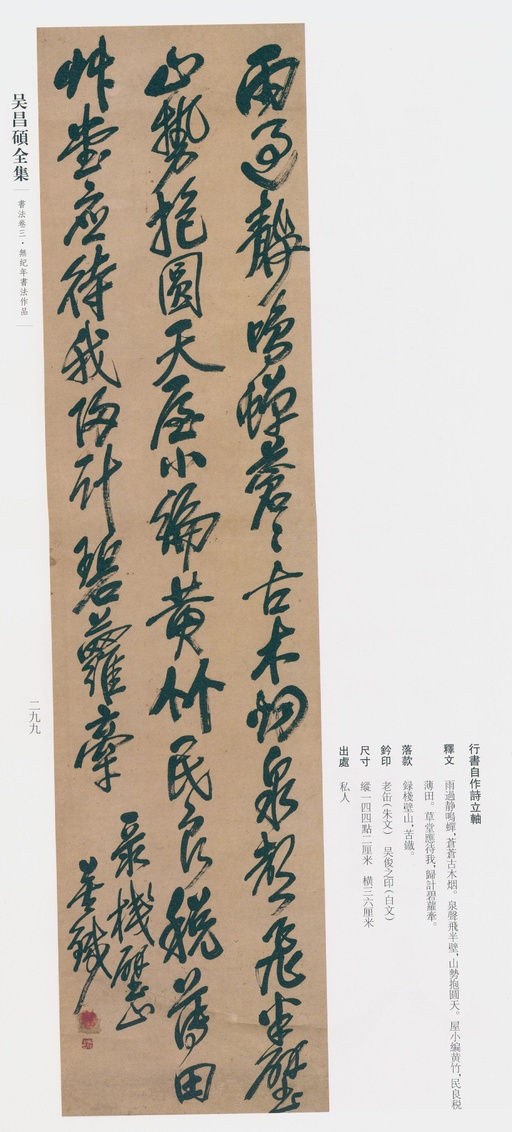 雨過靜鳴蟬蒼蒼古木烟泉聲飛半壁
山勢抱圓天屋小編黄竹民良税薄田
艸堂應待我歸計碧蘿牽
录棧壁山
苦鐵
行書自作詩立軸
釋文 雨過静鳴蟬，蒼蒼古木烟。泉聲飛半壁，山勢抱圓天。屋小編黄竹，民良税
薄田。草堂應待我，歸計碧蘿牽。
落款 録棧壁山，苦鐵。
鈐印 老缶（朱文） 吴俊之印（白文）
尺寸 縱一四四點二厘米 横三六厘米
出處 私人
吴昌碩全集
書法卷三·無紀年書法作品
二九九